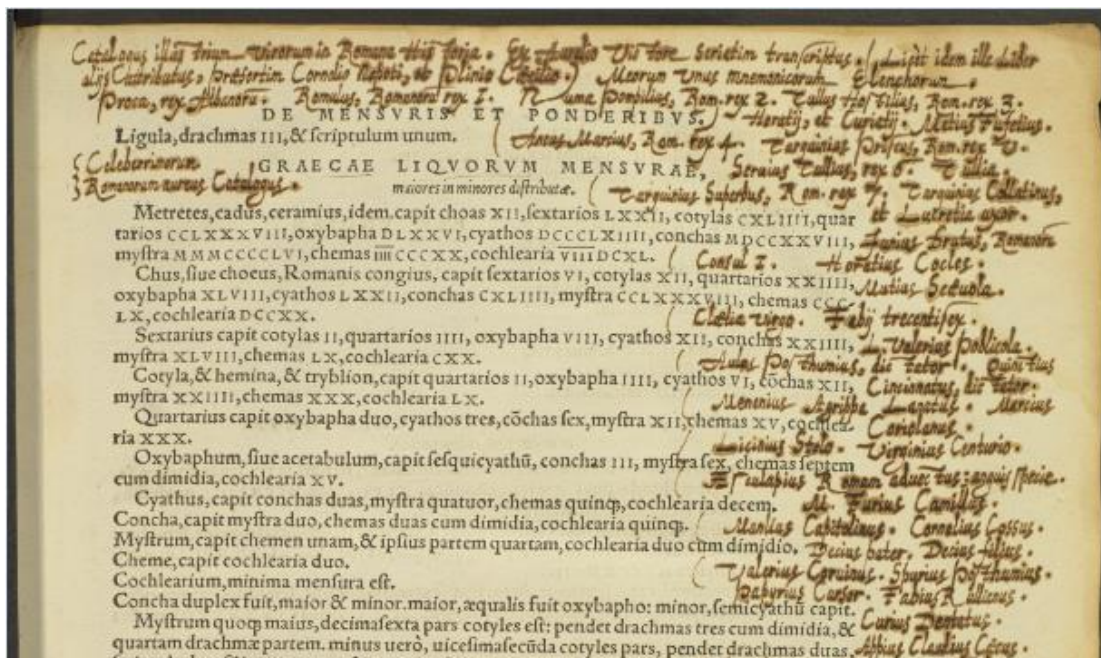 Catalogus illustrium virorum in Romana Historia. Ex Aurelio Victore seriatim transcriptus. (Licèt idem ille Liber
alijs attributus, præsertim Cornelio Nepoti, et Plinio Cæcilio.) Meorum unus mnemonicorum Elenchorum.
Proca, rex Albanorũ. Romulus, Romanorũ rex 1. Numa Pompilius, Rom. rex 2. Tullus Hostilius, Rom. rex 3.
DE MENSVRIS ET PONDERIBVS.
Horatij, et Curiatij. Metius Fufetius.
Ligula, drachmas III, & scriptulum unum.
Ancus Marcius, Rom. rex 4. Tarquinius Priscus, Rom. rex 5.
Celeberrimorum
Romanorum aureus Catalogus.
GRAECAE LIQVORVM MENSVRAE,
Seruius Tullius, rex 6. Tullia.
maiores in minores distributæ.
Tarquinius Superbus, Rom. rex 7. Tarquinius Collatinus,
et Lutretia uxor.
Metretes, cadus, ceramius, idem. capit choas XII, sextarios LXXII, cotylas CXLIIII, quar
tarios CCLXXXVIII, oxybapha DLXXVI, cyathos DCCCLXIIII, conchas MDCCXXVIII,
Junius Brutus, Romanorũ
mystra MMMCCCCLVI, chemas IIIICCCXX, cochlearia VIIIDCXL.
Consul 1. Horatius Cocles.
Chus, siue choeus, Romanis congius, capit sextarios VI, cotylas XII, quartarios XXIIII,
Mutius Scæuola.
oxybapha XLVIII, cyathos LXXII, conchas CXLIIII, mystra CCLXXXVIII, chemas CCC
LX, cochlearia DCCXX.
Clælia virgo. Fabij trecenti sex.
Sextarius capit cotylas II, quartarios IIII, oxybapha VIII, cyathos XII, conchas XXIIII,
L. Valerius Poblicola.
mystra XLVIII, chemas LX, cochlearia CXX.
Aulus Posthumius, dictator. Quinctius
Cotyla, & hemina, & tryblion, capit quartarios II, oxybapha IIII, cyathos VI, cõchas XII,
Cincinnatus, dictator.
mystra XXIIII, chemas XXX, cochlearia LX.
Menenius Agrippa Lanatus. Marcius
Quartarius capit oxybapha duo, cyathos tres, cõchas sex, mystra XII, chemas XV, cochlea-
Coriolanus.
ria XXX.
Licinius Stolo. Virginius Centurio.
Oxybaphum, siue acetabulum, capit sesquicyathũ, conchas III, mystra sex, chemas septem
Æsculapius Romam aduectus: anguis specie.
cum dimidia, cochlearia XV.
Cyathus, capit conchas duas, mystra quatuor, chemas quinq;, cochlearia decem.
Furius Camillus.
Concha, capit mystra duo, chemas duas cum dimidia, cochlearia quinq;.
Manlius Capitolinus. Cornelius Cossus.
Mystrum, capit chemen unam, & ipsius partem quartam, cochlearia duo cum dimidio.
Decius pater. Decius filius.
Cheme, capit cochlearia duo.
Valerius Coruinus. Spurius Posthumius.
Cochlearium, minima mensura est.
Papyrius Cursor. Fabius Rullianus.
Concha duplex fuit, maior & minor. maior, æqualis fuit oxybapho: minor, semicyathũ capit.
Curius Dentatus.
Mystrum quoq; maius, decimasexta pars cotyles est: pendet drachmas tres cum dimidia, &
quartam drachmæ partem. minus uerò, uicesimasecũda cotyles pars, pendet drachmas duas,
Appius Claudius Cæcus.